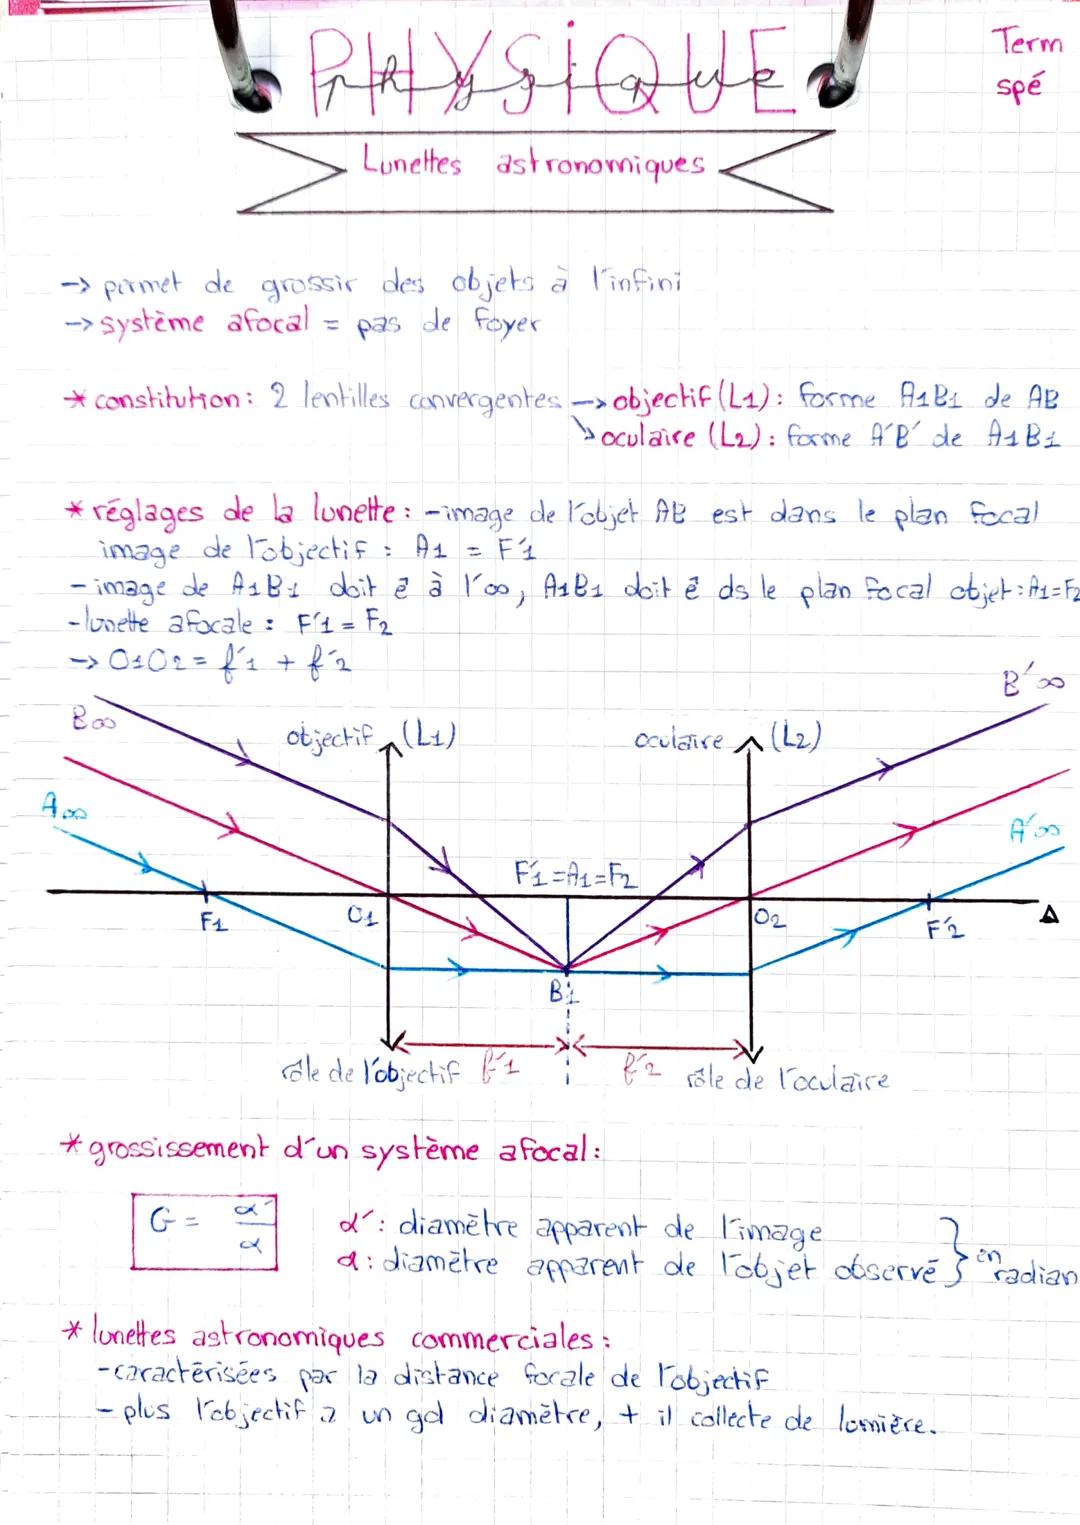 PHYSIQUE
Physique
Term
spé
Lunettes astronomiques
-> permet de grossir des objets à l'infini
-> système afocal = pas de foyer
* constitution : 2 lentilles convergentes -> objectif (L1) : forme A1B1 de AB
↘ oculaire (L2) : forme A'B' de A1B1
* réglages de la lunette : - image de l'objet AB est dans le plan focal
image de l'objectif : A1 = F'1
- image de A1B1 doit ê à l'∞, A1B1 doit ê ds le plan focal objet : A1=F2
- lunette afocale : F'1 = F2
-> O1O2 = f'1 + f'2
B'∞
B∞
objectif (L1)
oculaire (L2)
A∞
A'∞
F'1=A1=F2
F1
O1
O2
F'2
Δ
B1
f'1
f'2
rôle de l'objectif
rôle de l'oculaire
* grossissement d'un système afocal :
G = α'/α
α' : diamètre apparent de l'image
α : diamètre apparent de l'objet observé } en radian
* lunettes astronomiques commerciales :
- caractérisées par la distance focale de l'objectif
- plus l'objectif a un gd diamètre, + il collecte de lumière.